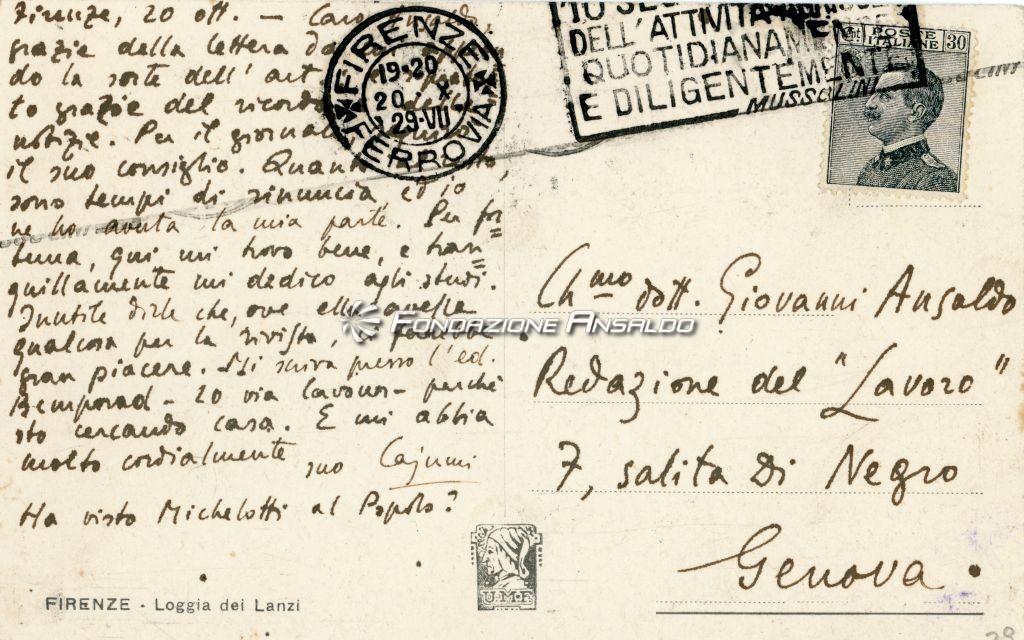 Firenze, 20 ott. — Caro
grazie della lettera
do la sorte dell'art
to grazie del ricordo
notizie. Per il giornal
il suo consiglio. Quanto
sono tempi di rinuncia, ed io
ne ho avuta la mia parte. Per for=
tuna, qui mi trovo bene, e tran=
quillamente mi dedico agli studi.
Inutile dirle che, ove ella avesse
qualcosa per la rivista,
gran piacere. Mi scriva presso l'ed.
Bemporad - 20 via Cavour - perché
sto cercando casa. E mi abbia
molto cordialmente suo Cajumi
Ha visto Michelotti al Popolo?
FIRENZE
19-20
20 . X
29-VII
FERROVIA
10 SEC
DELL'ATTIVITÀ
QUOTIDIANAMENTE
E DILIGENTEMENTE
MUSSOLINI
POSTE ITALIANE 30
Ch.mo dott. Giovanni Ansaldo
Redazione del "Lavoro"
7, salita Di Negro
Genova.
FONDAZIONE ANSALDO
U.M.F.
FIRENZE - Loggia dei Lanzi